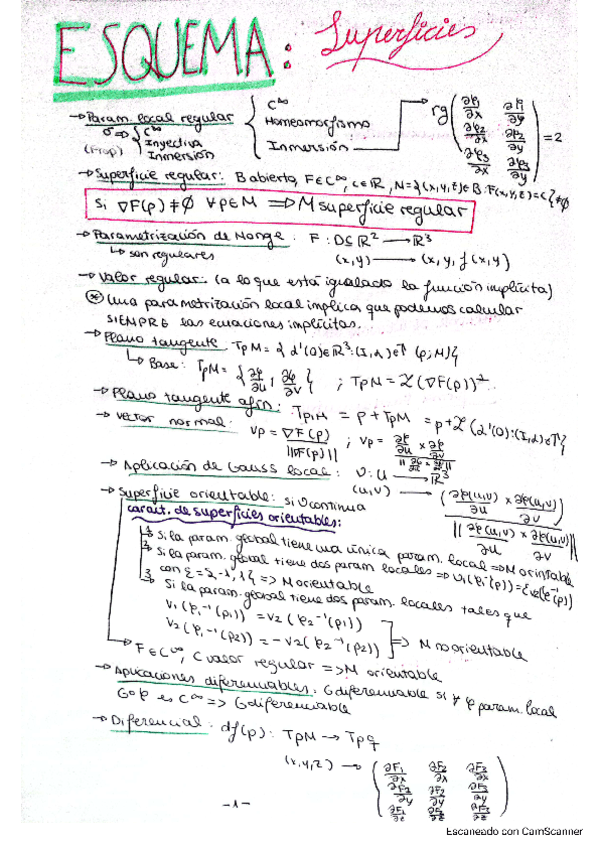 ESQUEMA: Superficies
→ Param. local regular { C∞ Homeomorfismo Inmersión → rg (∂φ1/∂x ∂φ1/∂y ∂φ2/∂x ∂φ2/∂y ∂φ3/∂x ∂φ3/∂y) = 2
(Prop) σ ⇒ { C∞ Inyectiva Inmersión
→ Superficie regular: B abierto, F∈C∞, c∈ℝ, M={(x,y,z)∈B:F(x,y,z)=c}≠∅
Si ∇F(p)≠0 ∀p∈M ⇒ M superficie regular
→ Parametrización de Monge: F: D⊆ℝ² → ℝ³
↳ son regulares (x,y) → (x,y,f(x,y)
→ Valor regular: (a lo que está igualado la función implícita)
* Una parametrización local implica que podemos calcular
SIEMPRE las ecuaciones implícitas.
→ Plano tangente TpM = {α'(0)∈ℝ³:(I,α)∈ (p;M)}
↳ Base: TpM = {∂φ/∂u, ∂φ/∂v} ; TpM = L(∇F(p))⊥
→ Plano tangente afín: TpM = p+TpM = p+L(α'(0):(I,α)∈ }
→ Vector normal: νp = ∇F(p)/||∇F(p)|| ; νp = ∂φ/∂u × ∂φ/∂v / ||∂φ/∂u × ∂φ/∂v||
→ Aplicación de Gauss local: ν: U → ℝ³
(u,v) → (∂φ(u,v)/∂u × ∂φ(u,v)/∂v) / ||∂φ(u,v)/∂u × ∂φ(u,v)/∂v||
→ Superficie orientable: si ν continua
caract. de superficies orientables:
1 Si la param. global tiene una única param. local ⇒ M orintable
2 Si la param. global tiene dos param locales ⇒ ν1(φ1⁻¹(p))=εν2(φ2⁻¹(p))
con ε={-1,1} ⇒ M orientable
3 Si la param. global tiene dos param. locales tales que
ν1(φ1⁻¹(p1)) = ν2(φ2⁻¹(p1))
ν2(φ1⁻¹(p2)) = -ν2(φ2⁻¹(p2)) ] ⇒ M no orientable
→ F∈C∞, C valor regular ⇒ M orientable
→ Aplicaciones diferenciables: G diferenciable si ∀ φ param. local
G∘φ es C∞ ⇒ G diferenciable
→ Diferencial: df(p): TpM → Tpq
(x,y,z) → (∂F1/∂x ∂F2/∂x ∂F3/∂x ∂F1/∂y ∂F2/∂y ∂F3/∂y ∂F1/∂z ∂F2/∂z ∂F3/∂z)
-1-
Escaneado con CamScanner